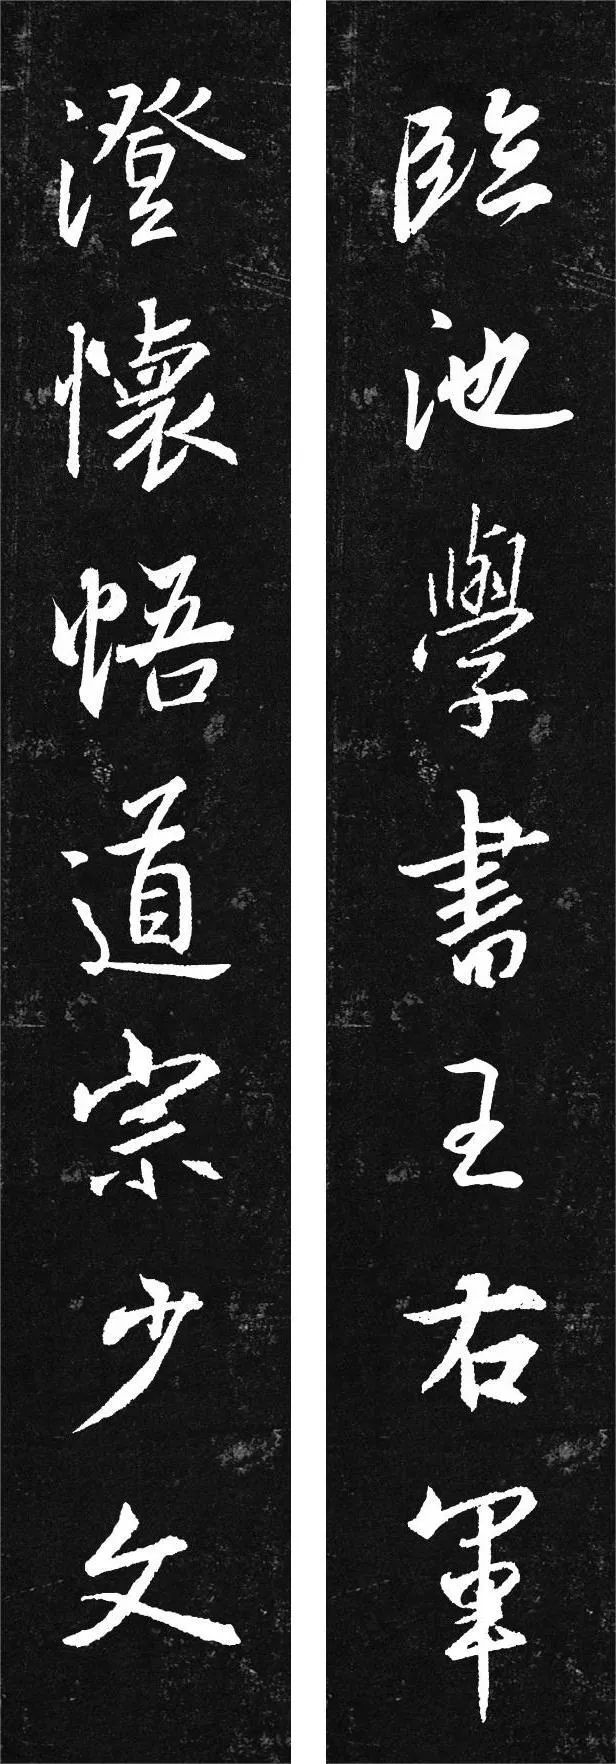 臨池學書王右軍
澄懷悟道宗少文